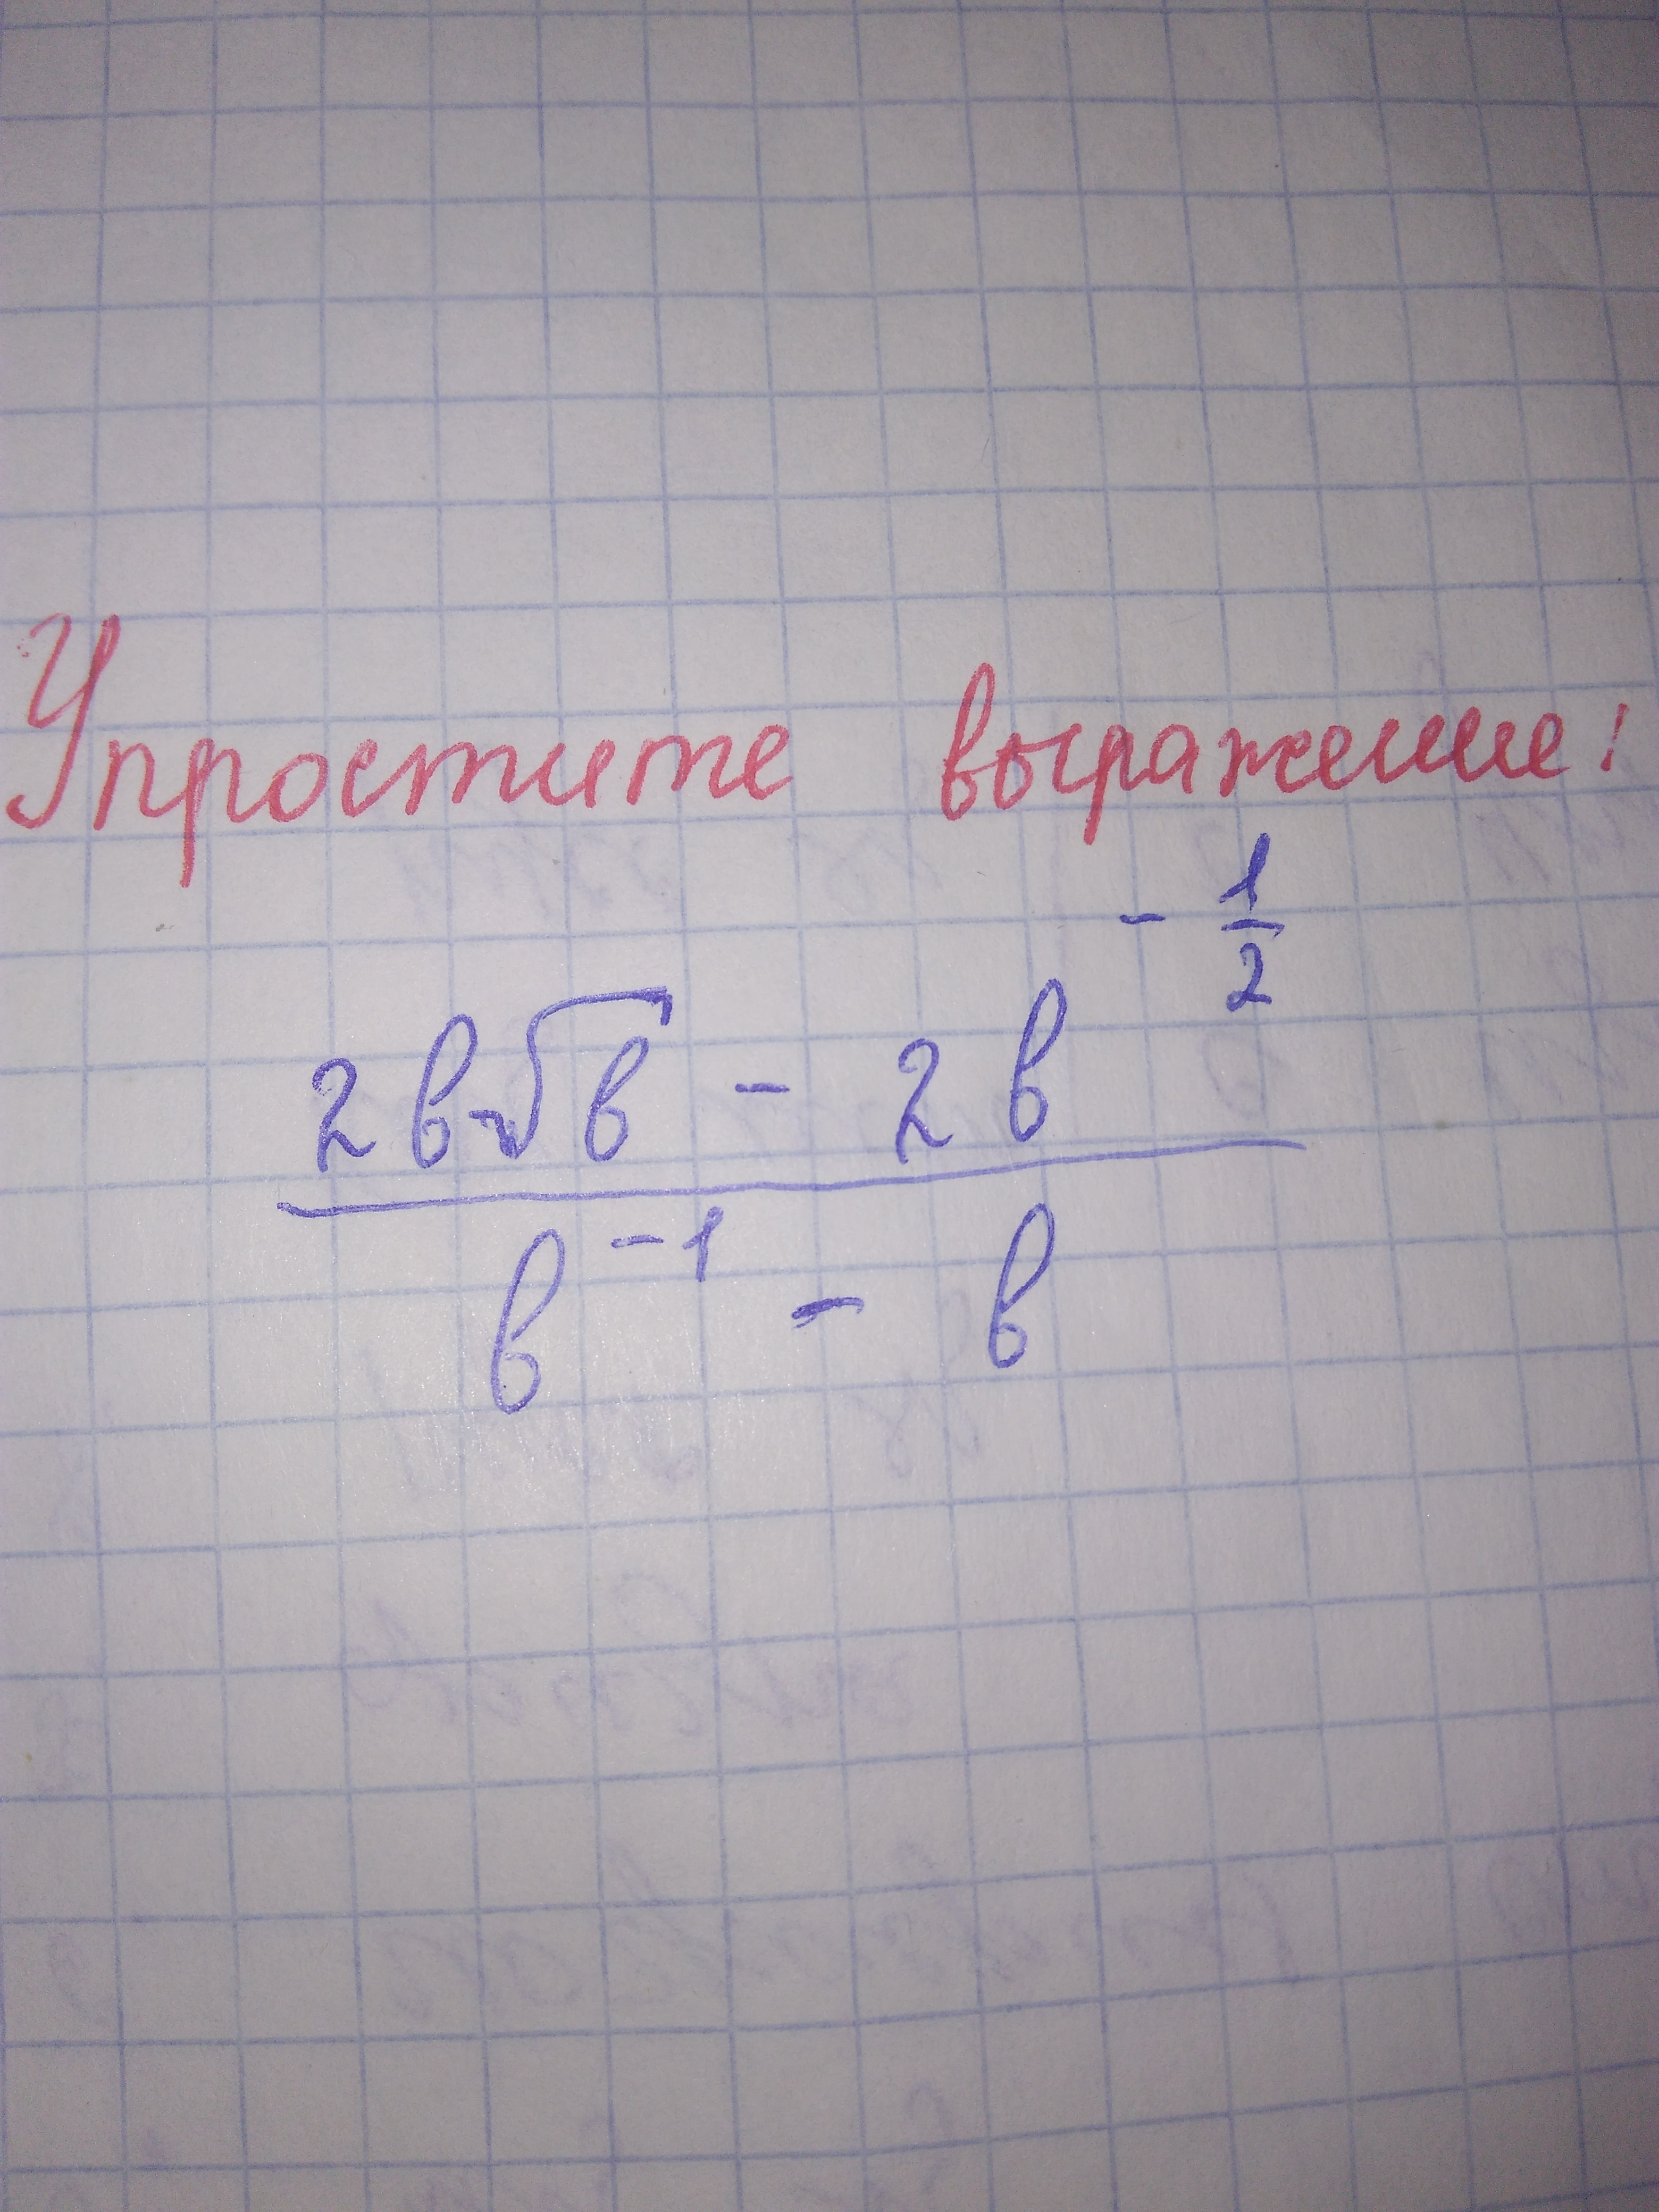 Упростите выражение:
2в√в - 2в^(-1/2)
в^(-1) - в